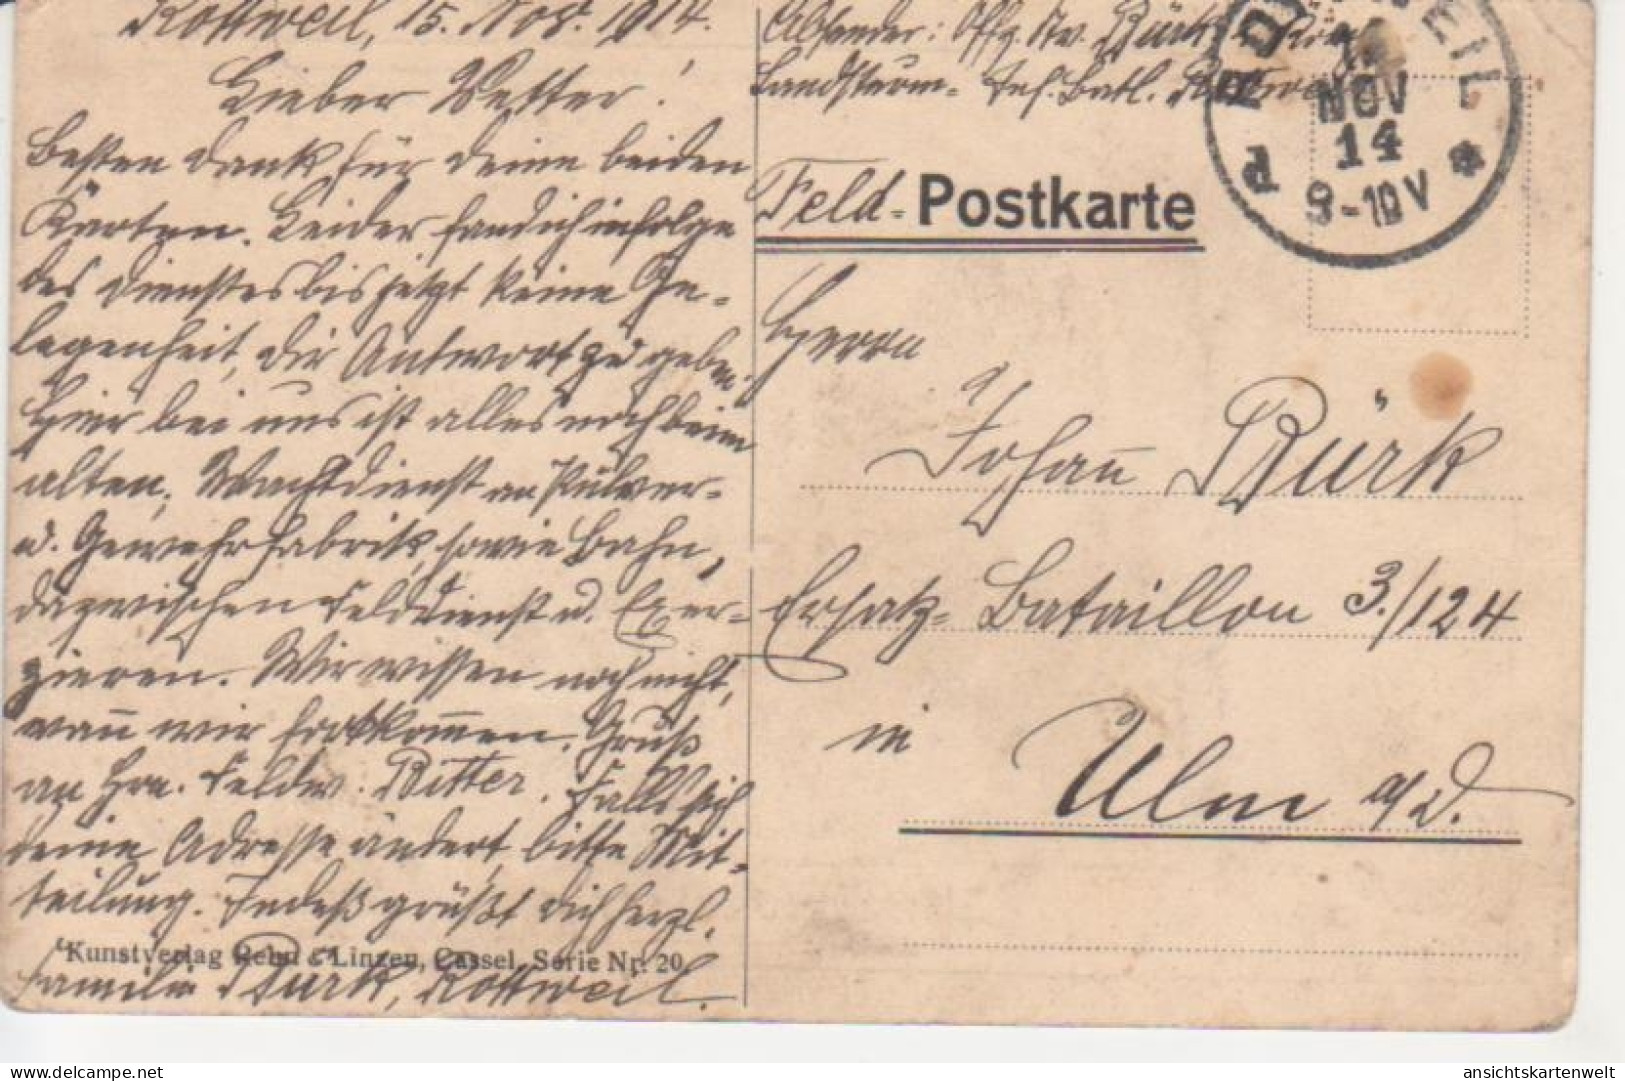 Rottweil, 15. Nov. 1914.
Lieber Vetter!
Besten Dank für deine beiden
Karten. Leider fand ich infolge
des Dienstes bis jetzt keine Ge-
legenheit, dir Antwort zu geben.
Hier bei uns ist alles noch beim
alten; Wachtdienst an Pulver-
u. Gewehrfabrik, sowie Bahn,
dazwischen Felddienst u. Exer-
zieren. Wir wissen noch nicht,
wann wir fortkommen. Gruß
an Hrn. Feldw. Ritter. Falls sich
deine Adresse ändert, bitte Mit-
teilung. Indeß grüßt dich herzl.
Familie Bürk, Rottweil.
Kunstverlag Rehn & Linzen, Cassel, Serie Nr. 20
Absender: Offz. Stv. Bürk
Landsturm- Inf. Batl. Rottweil
ROTTWEIL
NOV
14
9-10V
Feld-Postkarte
Herrn
Johann Bürk
Ersatz-Bataillon 3./124
in
Ulm a/D.
ansichtskartenwelt